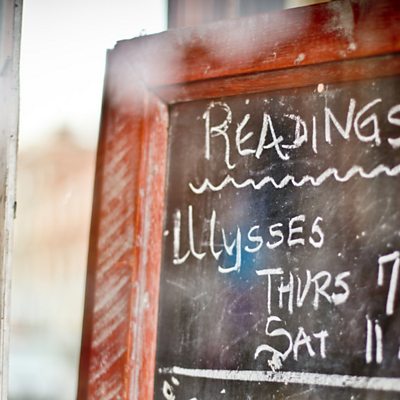 READINGS
Ulysses
THURS 7
SAT 11